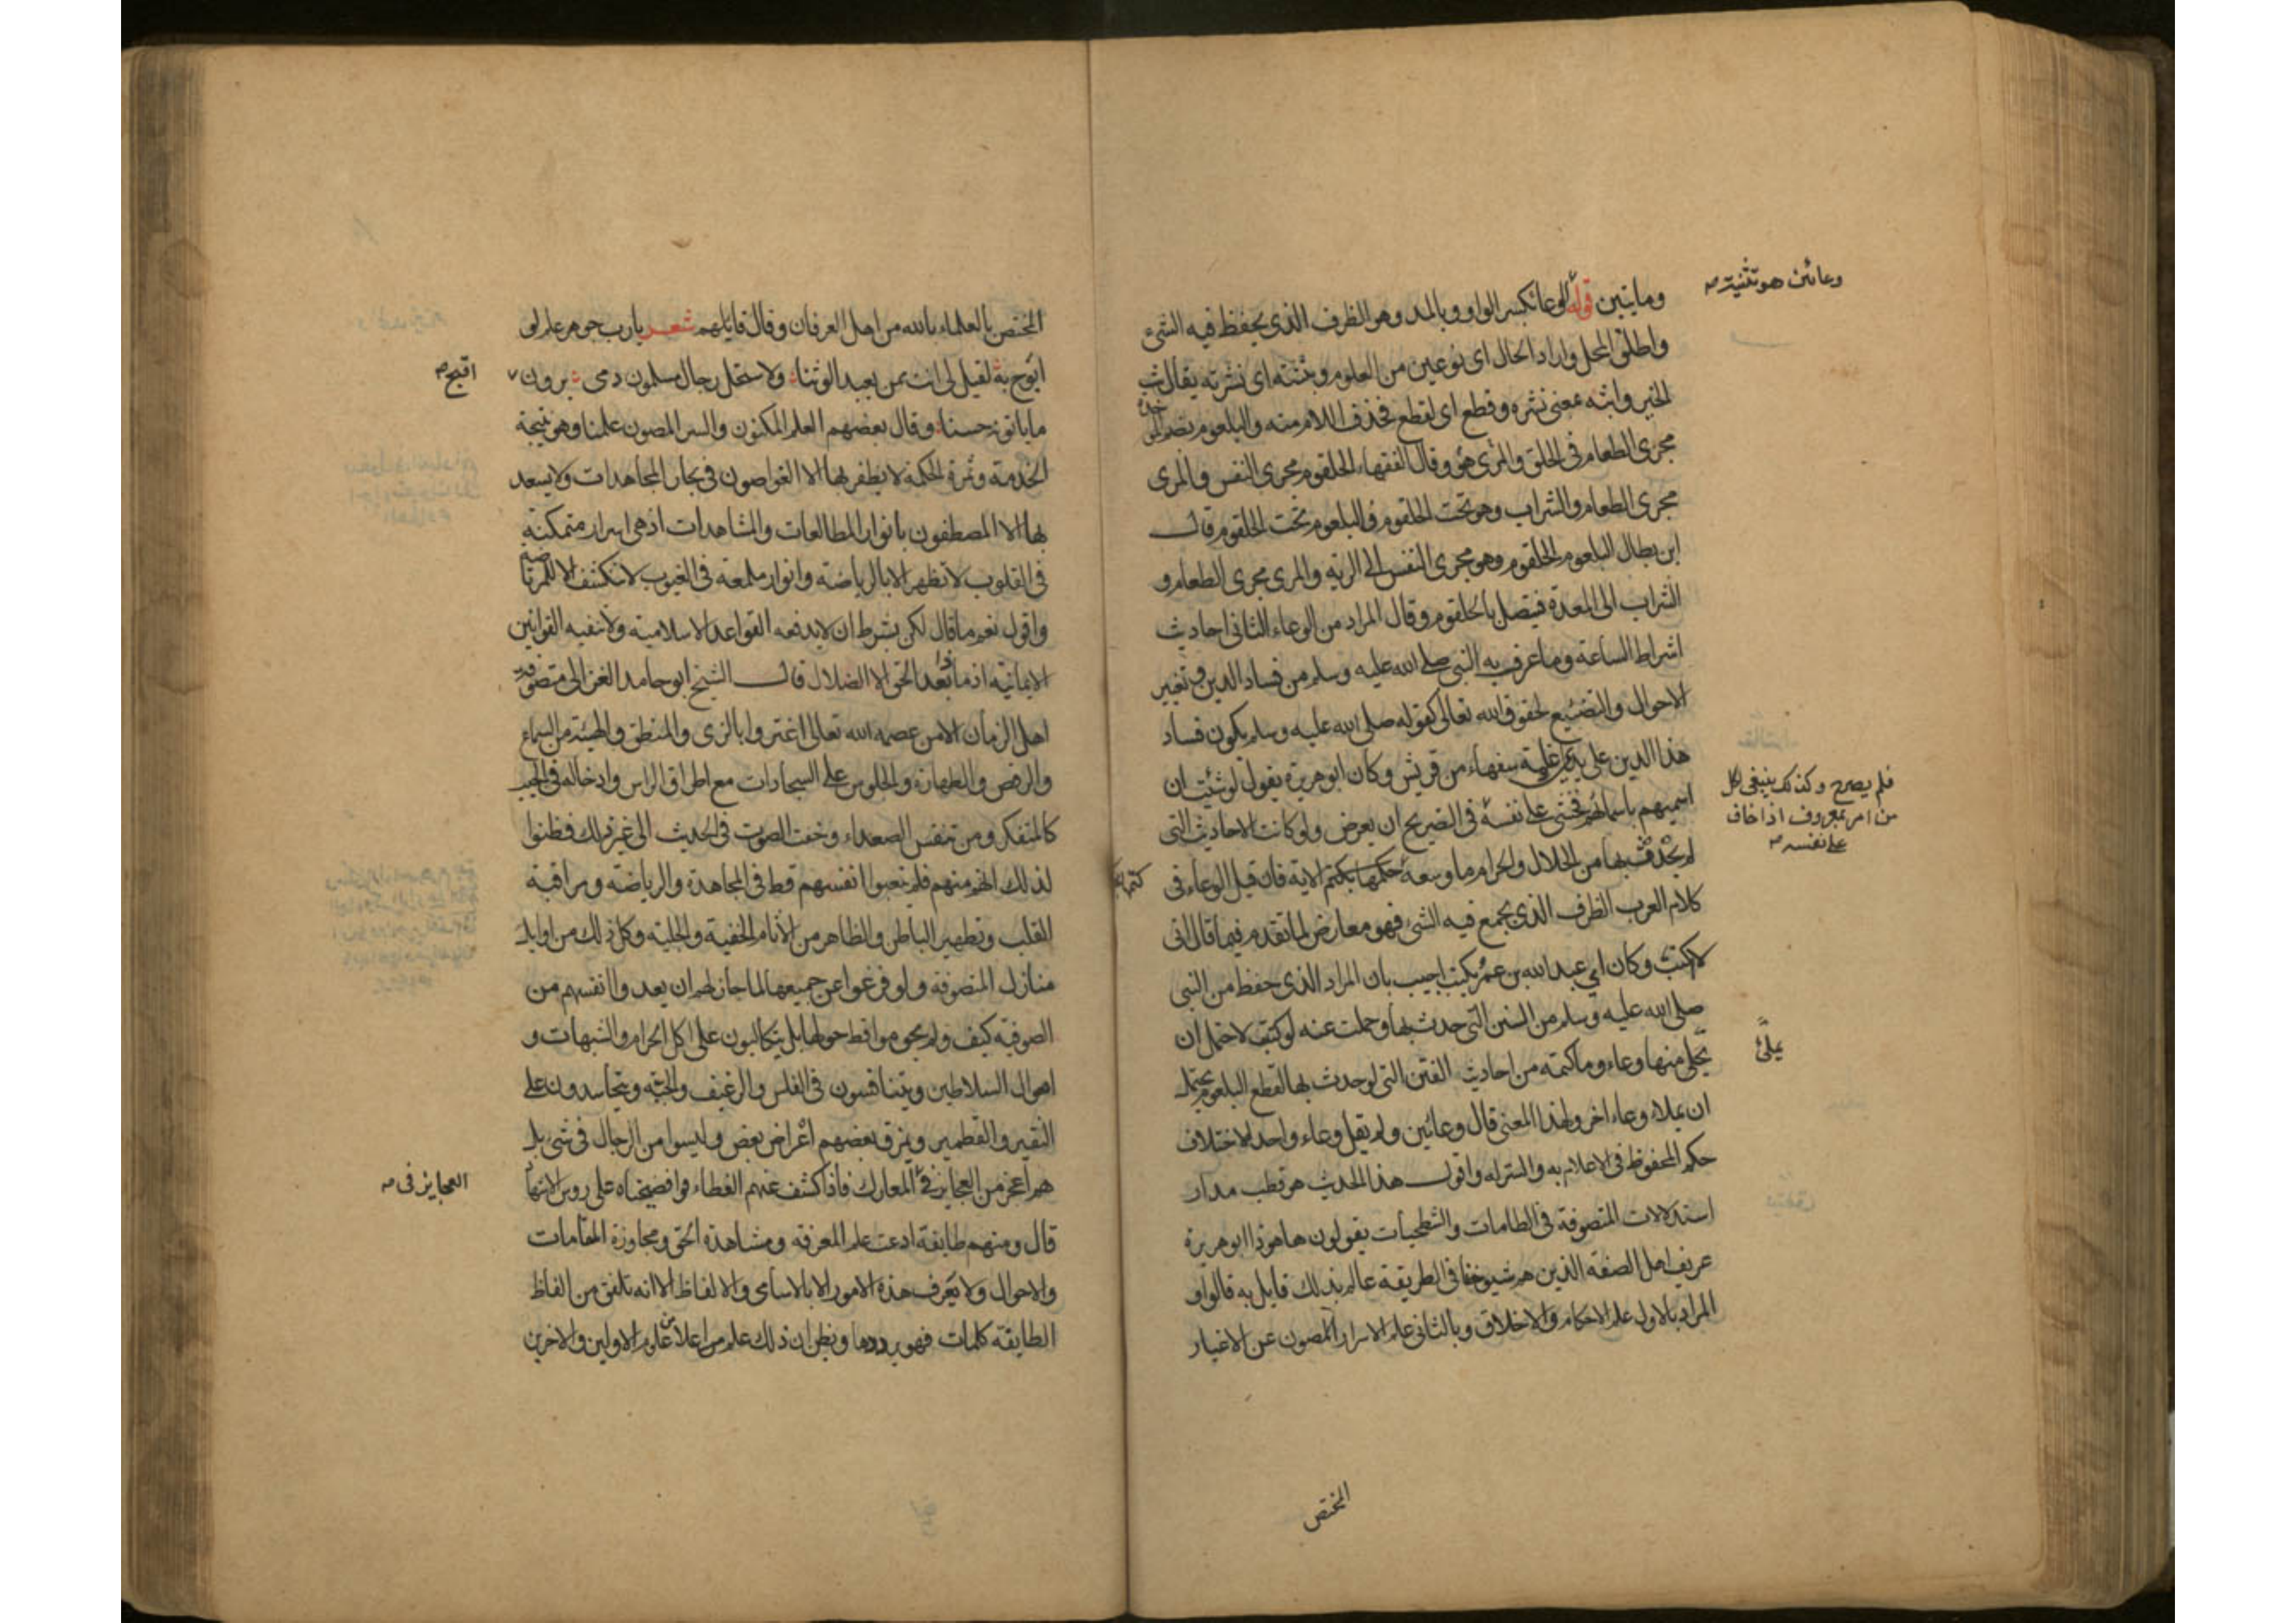 وعائين هو تثنية صح
ومايتين قوله الوعا بكسر الواو وبالمد وهو الظرف الذي يحفظ فيه الشيء
واطلق المحل واراد الحال اي نوعين من العلوم وبثثته اي نشرته يقال بث
الخير وابثه بمعنى نشره وقطع اي لقطع فحذف اللام منه والبلعوم بضم الموحدة
مجرى الطعام في الحلق والمرئ هو وقال الفقهاء الحلقوم مجرى النفس والمرى
مجرى الطعام والشراب وهو تحت الحلقوم والبلعوم تحت الحلقوم قال
ابن بطال البلعوم الحلقوم وهو مجرى النفس الى الرية والمرى مجرى الطعام و
الشراب الى المعدة فيتصل بالحلقوم وقال المراد من الوعاء الثاني احاديث
اشراط الساعة وما عرف به النبي صلى الله عليه وسلم من فساد الدين وتغيير
الاحوال والتضييع لحقوق الله تعالى كقوله صلى الله عليه وسلم يكون فساد
هذا الدين على يدي اغيلمة سفهاء من قريش وكان ابو هريرة يقول لو شئت ان
اسميهم باسمائهم فخشي على نفسه في التصريح ان يعرض ولو كانت الاحاديث التي
فلم يصرح وكذلك ينبغي لكل
من امر بمعروف اذا خاف
على نفسه صح
لم يحدث بها من الحلال والحرام ما وسعه حكمها بكتم الاية فان قيل الوعاء في
كتمها
كلام العرب الظرف الذي يجمع فيه الشئ فهو معارض لما تقدم فيما قال اني
لا اكتب وكان اي عبد الله بن عمر يكتب اجيب بان المراد الذي حفظ من النبي
صلى الله عليه وسلم من السنن التي حدث بها وحملت عنه لو كتب لاحتمل ان
يملئ
يملى منها وعاء وما كتمه من احاديث الفتن التي لو حدث بها لقطع البلعوم يحتمل
ان يملاء وعاء اخر ولهذا المعنى قال وعائين ولم يقل وعاء واحد لاختلاف
حكم المحفوظ في الاعلام به والستر له واقول هذا الحديث هو قطب مدار
استدلالات المتصوفة في الطامات والشطحيات يقولون ها هو ذا ابو هريرة
عريف اهل الصفة الذين هم شيوخنا في الطريقة عالم بذلك قايل به قالوا و
المراد بالاول علم الاحكام والاخلاق وبالثاني علم الاسرار المصون عن الاغيار
المختص
المختص بالعلماء بالله من اهل العرفان وقال قايلهم شعر يا رب جوهر علم لو
ابوح به لقيل لي انت ممن يعبد الوثنا ولا ستحل رجال مسلمون دمى يرون
اقبح صح
ما ياتونه حسنا وقال بعضهم العلم المكنون والسر المصون علمنا وهو نتيجة
الخدمة وثمرة الحكمة لا يظفر بها الا الغواصون في بحار المجاهدات ولا يسعد
بها الا المصطفون بانوار المطالعات والمشاهدات اذ هي اسرار متمكنة
في القلوب لا تظهر الا بالرياضة وانوار ملمعة في الغيوب لا تنكشف الا للمرتاضة
واقول نعم ما قال لكن بشرط ان لا يدفعه القواعد الاسلامية ولا تنفيه القوانين
الايمانية اذ ماذا بعد الحق الا الضلال قال الشيخ ابو حامد الغزالي متصوفة
اهل الزمان الا من عصمه الله تعالى اغتروا بالزى والمنطق والهيئة من السماع
والرقص والطهارة والجلوس على السجادات مع اطراق الراس وادخاله في الجيب
كالمتفكر ومن تنفس الصعداء وخفت الصوت في الحديث الى غير ذلك فظنوا
لذلك انهم منهم فلم يتعبوا انفسهم قط في المجاهدة والرياضة ومراقبة
القلب وتطهير الباطن والظاهر من الاثام الخفية والجلية وكل ذلك من اوايل
منازل المتصوفة ولو فرغوا عن جميعها لما جاز لهم ان يعدوا انفسهم من
الصوفية كيف ولم يحوموا قط حولها بل يتكالبون على اكل الحرام والشبهات و
اموال السلاطين ويتنافسون في الفلس والرغيف والحبة ويتحاسدون على
النقير والقطمير ويمزق بعضهم اغراض بعض وليسوا من الرجال في شئ بل
هم اعجز من العجايز في المعارك فاذا كشف عنهم الغطاء فوا فضيحتاه على روس الاشهاد
العجايز في صح
قال ومنهم طايفة ادعت علم المعرفة ومشاهدة الحق ومجاوزة المقامات
والاحوال ولا يعرف هذه الامور الا بالاسامى والالفاظ الا انه تلفق من الفاظ
الطايفة كلمات فهو يرددها ويظن ان ذلك علم من اعلا علوم الاولين والاخرين